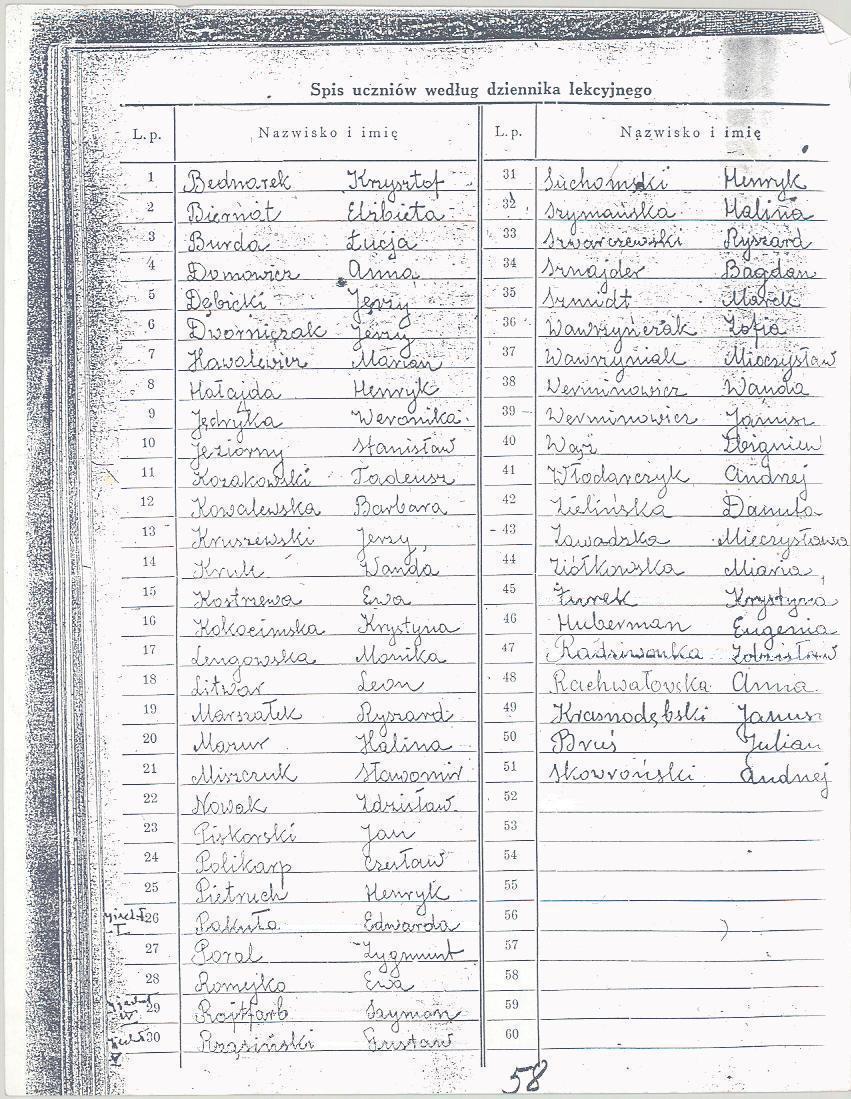 Spis uczniów według dziennika lekcyjnego
L.p. Nazwisko i imię
1 Bednarek Krzysztof
2 Biernat Elżbieta
3 Burda Łucja
4 Domowicz Anna
5 Dębicki Jerzy
6 Dworniczak Jerzy
7 Hawalewicz Marian
8 Hałajda Henryk
9 Jędryka Weronika
10 Jeziorny Stanisław
11 Kozakowski Tadeusz
12 Kowalewska Barbara
13 Kruszewski Jerzy
14 Kruk Wanda
15 Kostrzewa Ewa
16 Kokocimska Krystyna
17 Lengowska Monika
18 Litwar Leon
19 Marszałek Ryszard
20 Mazur Halina
21 Miszczuk Sławomir
22 Nowak Zdzisław
23 Piskorski Jan
24 Polikarp Czesław
25 Pietruch Henryk
26 Pakuła Edwarda
27 Poral Zygmunt
28 Romejko Ewa
29 Rojtfarb Szymon
30 Rząsiński Gustaw
L.p. Nazwisko i imię
31 Suchomski Henryk
32 Szymańska Halina
33 Szwarczewski Ryszard
34 Sznajder Bogdan
35 Szmidt Marek
36 Wawrzyńczak Zofia
37 Wawrzyniak Mieczysław
38 Werminowicz Wanda
39 Werminowicz Janusz
40 Wąż Zbigniew
41 Włodarczyk Andrzej
42 Zielińska Danuta
43 Zawadzka Mieczysława
44 Ziółkowska Maria
45 Żurek Krystyna
46 Huberman Eugenia
47 Zdzisław
48 Rachwałowska Anna
49 Krasnodębski Janusz
50 Bruś Julian
51 Skowroński Andrzej
52
53
54
55
56
57
58
59
60
58